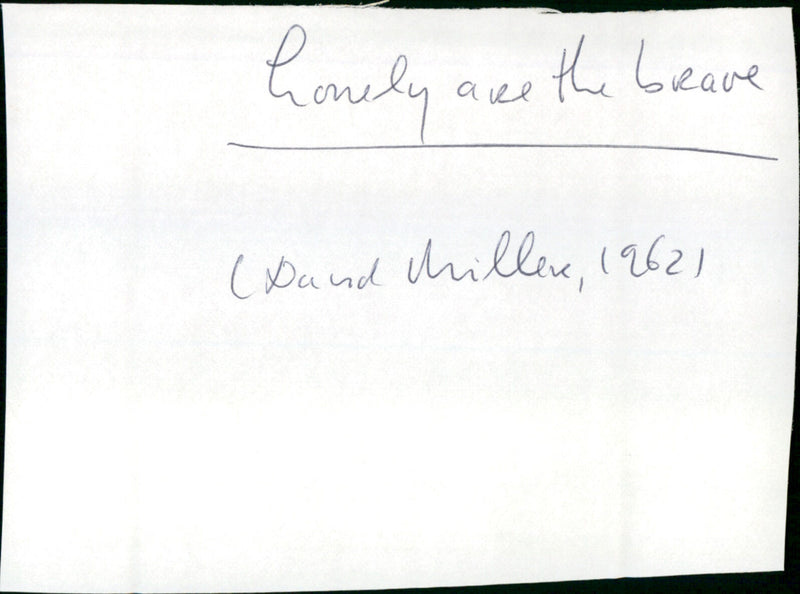 Lonely are the brave
(David Miller, 1962)